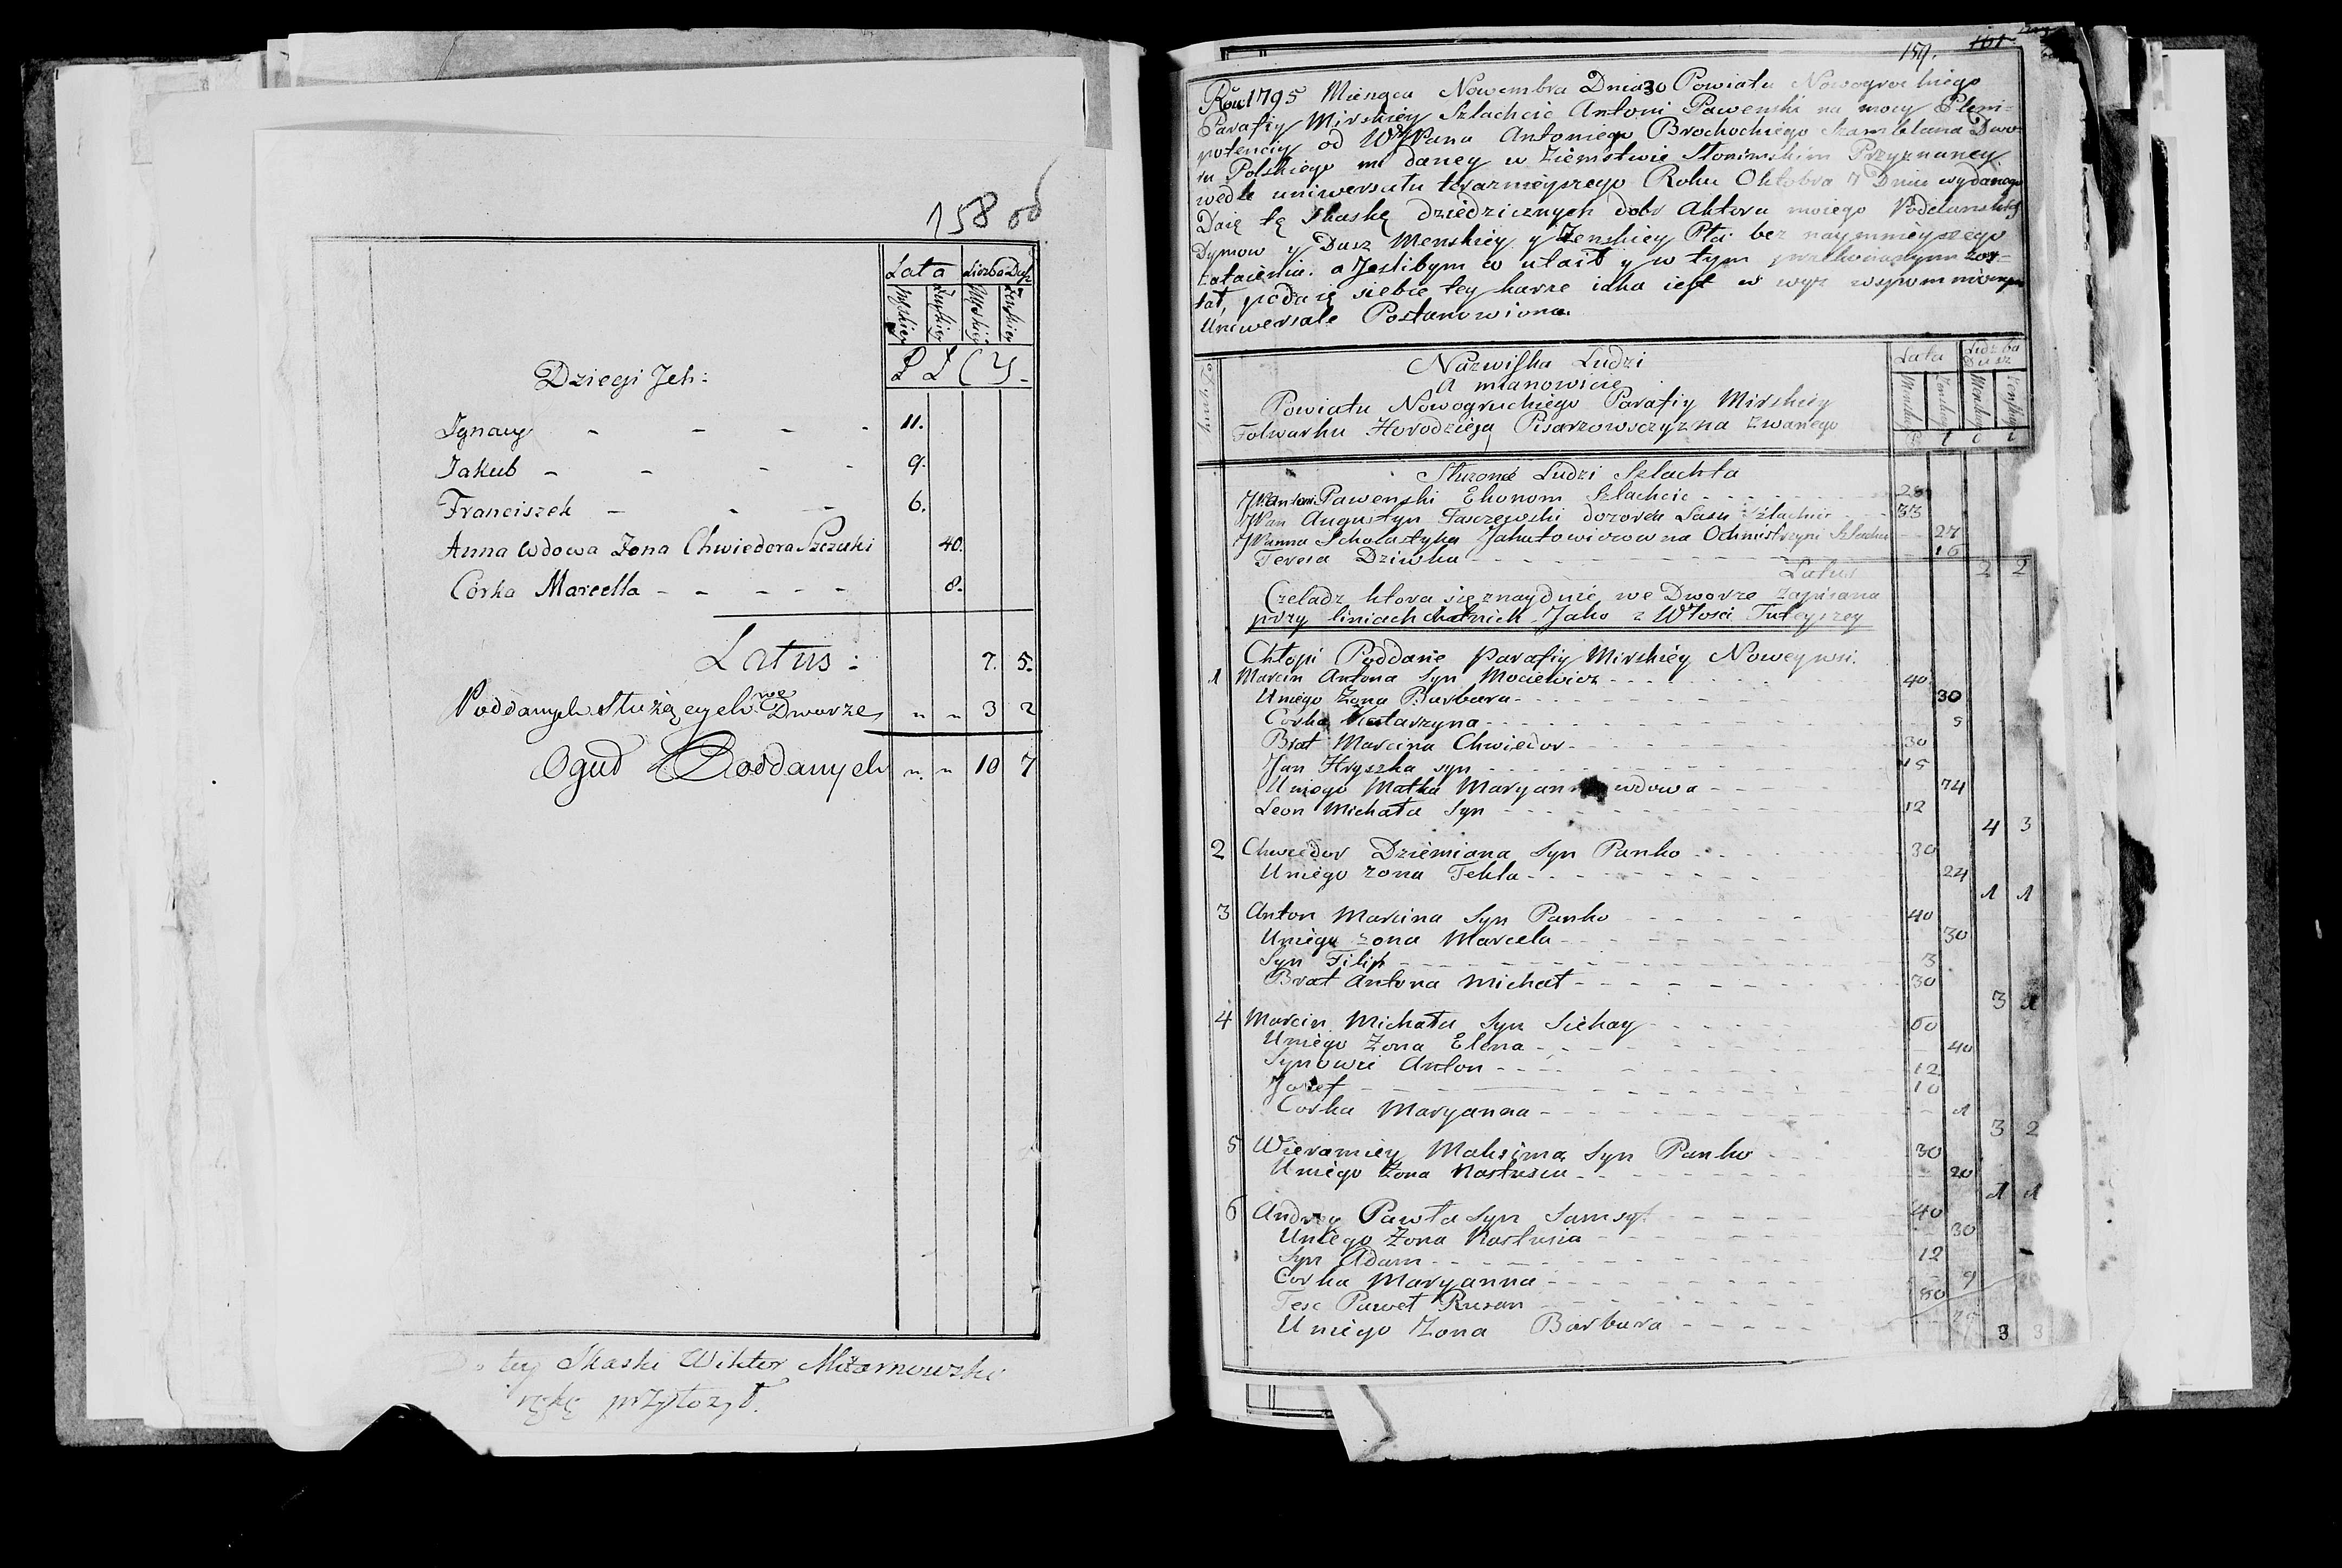 158 od
Lata Liczba Dusz
Męskiey Żeńskiey Męskiey Żeńskiey
P L C Y
Dzieci Jch:
Jgnacy - - - - 11.
Jakub - - - - 9.
Franciszek - - - 6.
Anna Wdowa Żona Chwiedora Szczuki 40.
Córka Marcella - - - - - 8.
Latus: 7. 5.
Poddanych Służących we Dworze " " 3 2
Oguł Poddanych " " 10 7
Do tey Skaski Wiktor
rękę przyłożył.
159. 161
Roku 1795 Miesąca Nowembra Dnia 30 Powiatu Nowogrockiego
Parafiy Mirskiey Szlachcic Antoni Pawenski na mocy Pleni-
potenciy od WJPana Antoniego Brochockiego Szambelana Dwo-
ru Polskiego mi daney w Ziemstwie Słonimskim Przyznaney
wedle uniwersału terazniejszego Roku Oktobra 7 Dnia wydanego
Daię tę Skaskę dziedzicznych dobr Aktora moiego Poddanskich
Dymow y Dusz Menskiey y Żenskiey Płci bez naymnieyszego
zataienia. a Jeslibym co utaił y w tym przekonanym zos-
tał, podaię siebie tey karze iaka iest w wyż wspomnionym
Uniwersale Postanowiona.
Dymy
Nazwiska Ludzi
A mianowicie
Powiatu Nowogruckiego Parafiy Mirskiey
Folwarku Horodzieja Pisarzowsczyzna Zwanego
Lata Liczba Dusz
Menskiey Żenskiey Menskiey Żenskiey
Służące Ludzi Szlachta
JPan Antoni Pawenski Ekonom Szlachcic - - - 28
JPan Augustyn dozorca Lasu Szlachcic - - 33
JPanna Scholastyka Jakutowiczowna Ochmistrzyni Szlach 27
Teresa Dziwka - - - 16
Latus 2 2
Czeladz ktora się znayduie we Dworze Zapisana
przy liniach chatnich Jako z Włosci Tuteyszey
Chłopi Poddanie Parafiy Mirskiey Nowey wsi.
1 Marcin Antona Syn Mociewicz - - - 40
Uniego Żona Barbara - - - 30
Corka Katarzyna - - - 5
Brat Marcina Chwiedor - - - 30
Jan Hryszka syn - - - 15
Uniego Matka Maryanna wdowa - - - 74
Leon Michała Syn - - - 12
4 3
2 Chwiedor Dziemiana Syn Panko - - - 30
Uniego zona Tekla - - - 24
1 1
3 Anton Marcina Syn Panko - - - 40
Uniego zona Marcela - - - 30
Syn Filip - - - 3
Brat Antona Michał - - - 30
3 1
4 Marcin Michała Syn Siekay - - - 60
Uniego Żona Elena - - - 40
Synowie Anton - - - 12
Jozef - - - 10
Corka Maryanna - - - 1
3 2
5 Wieramiey Maksima Syn Panko - - - 30
Uniego Żona Nastusia - - - 20
1 1
6 Andrey Pawła Syn - - - 40
Uniego Żona Nastusia - - - 30
Syn Adam - - - 12
Corka Maryanna - - - 9
Tesc Paweł Rusan - - - 80
Uniego Żona Barbara - - -
3 3